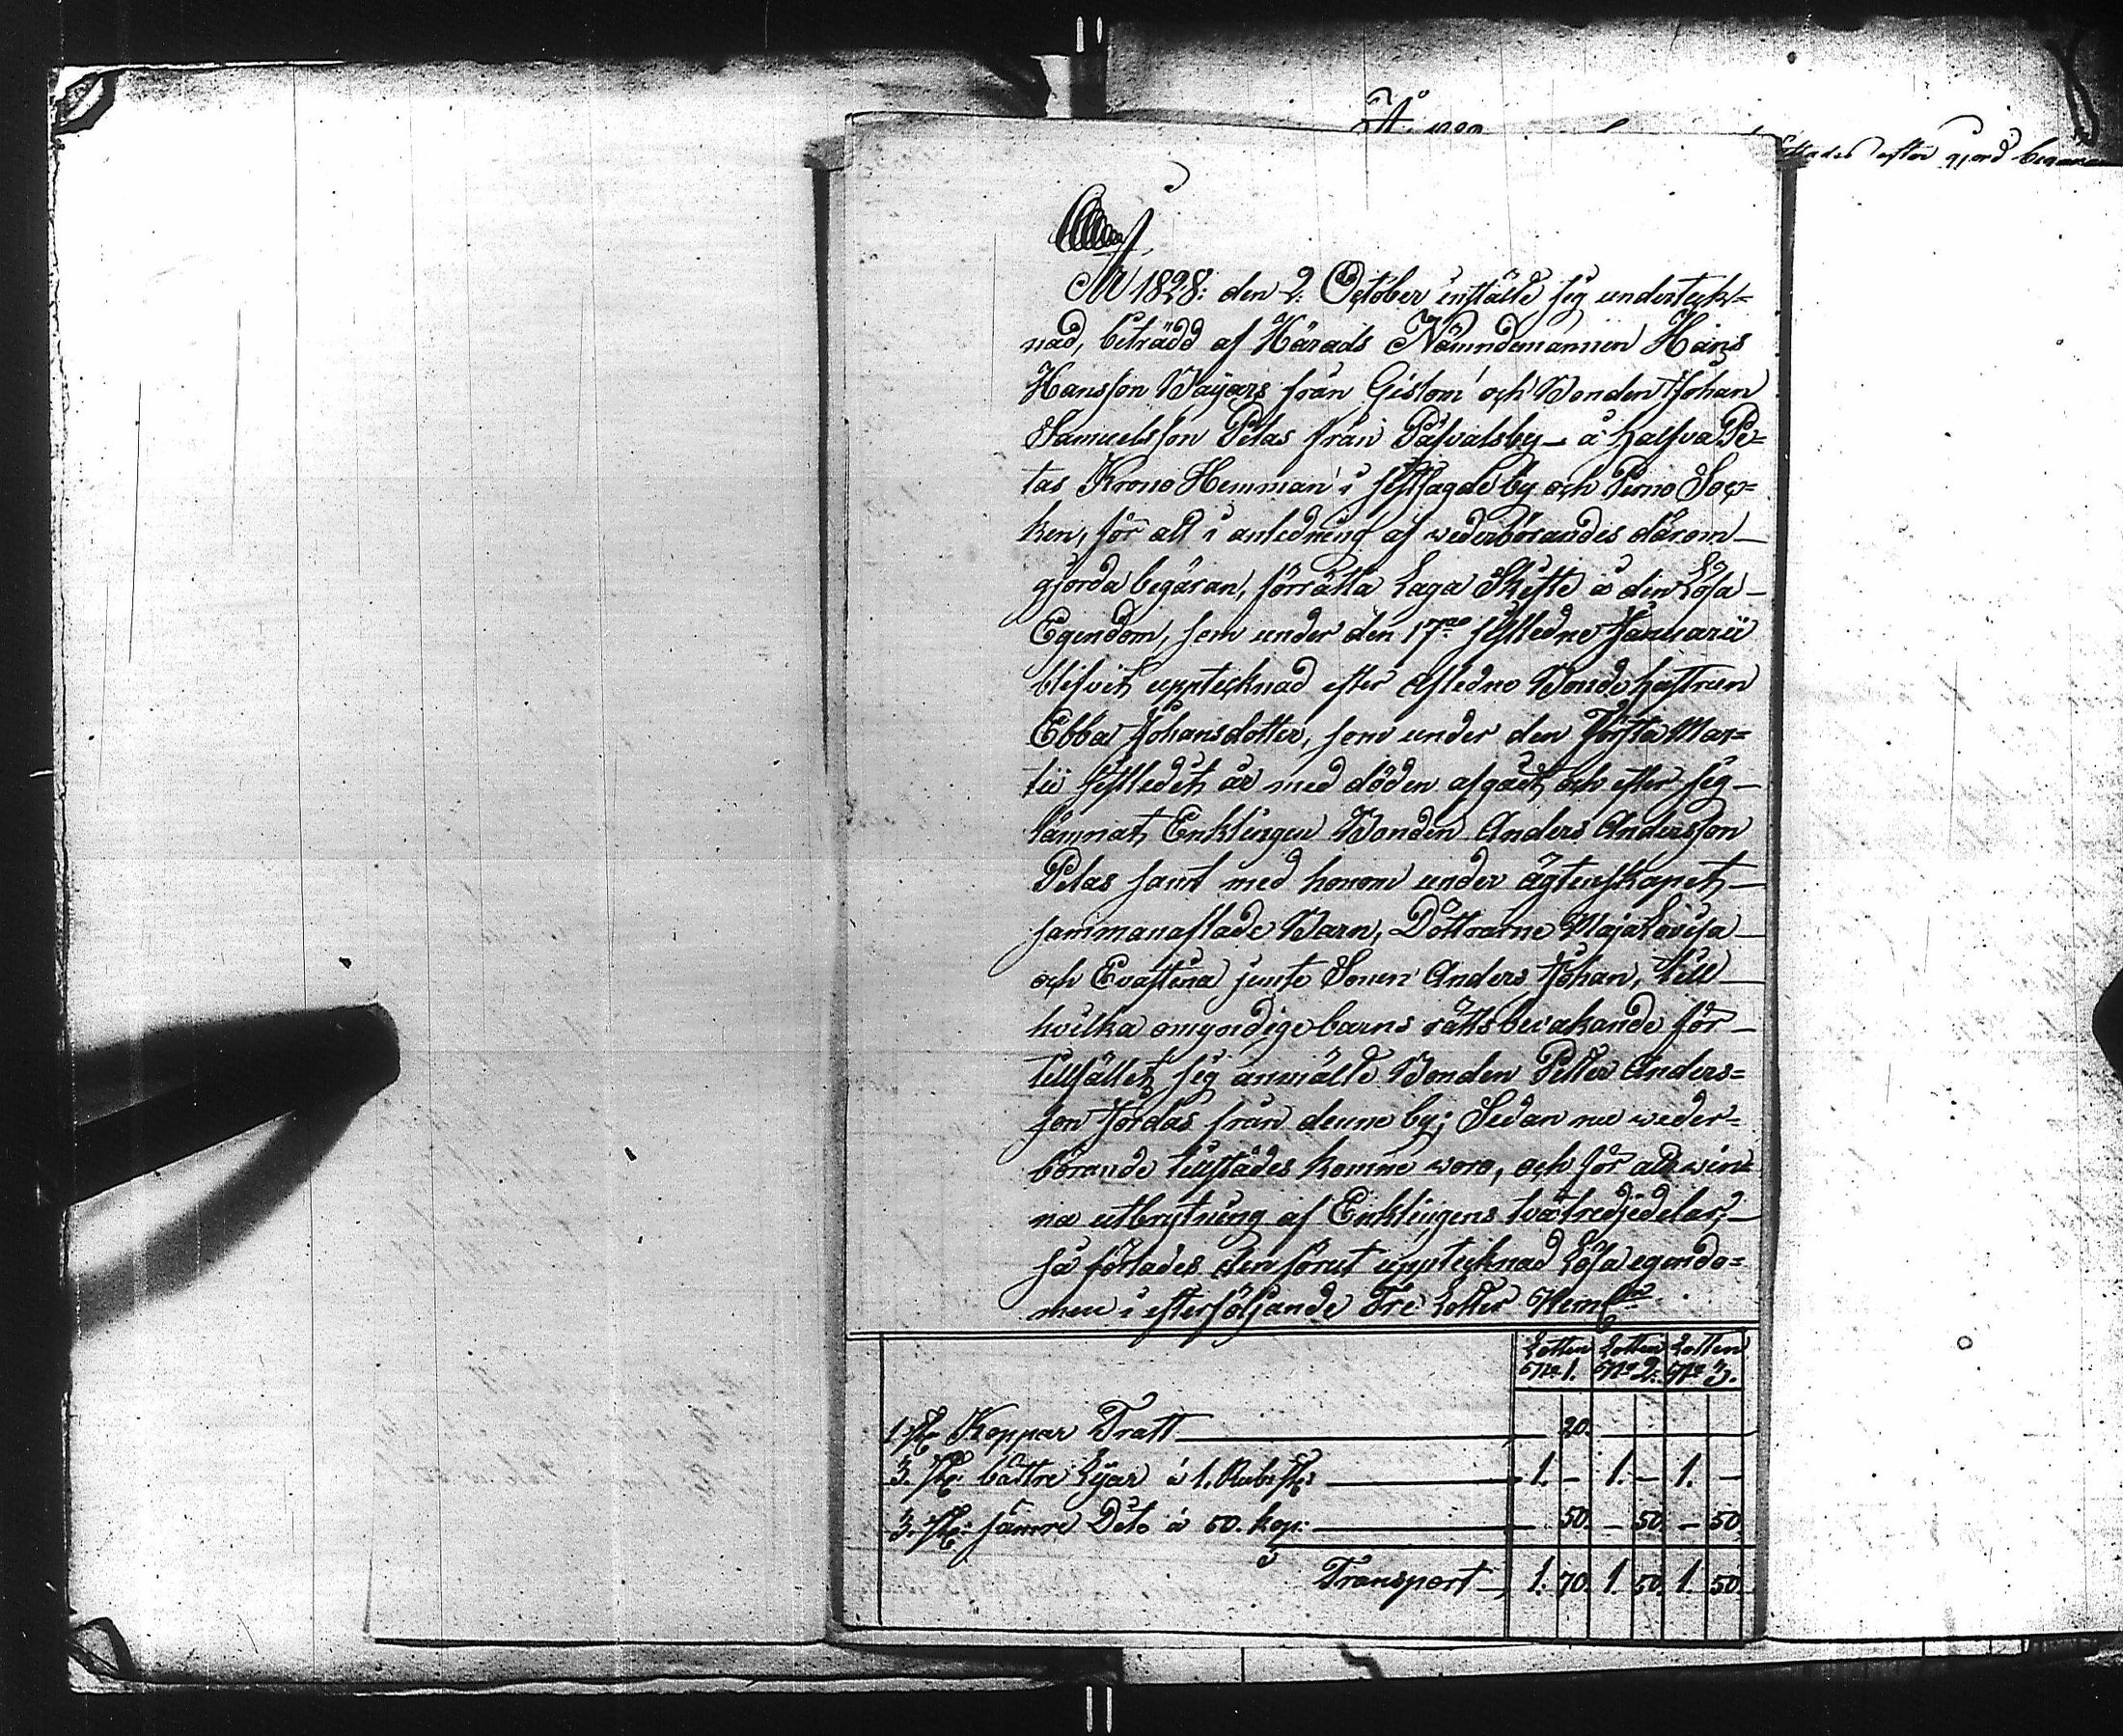 År 1828: den 2. October instälde sig underteck=
nad, biträdd af Härads Nämndemannen Hans
Hansson Bäÿars från Gislom och Bonden Johan
Samuelsson Petas från Påfvalsby – å halfva Pe=
tas Krono Hemman i sistsagde by och Perno Soc=
ken, för att i anledning af wederbörandes därom
gjorda begäran, förrätta Laga Skifte å den Lösa
Egendom, som under den 17de sistledne Januarii
blifvit upptecknad efter afledne Bondehustrun
Ebba Johansdotter, som under den Första Mar=
tii sistledit år med döden afgått och efter sig
lämnat Enklingen Bonden Anders Andersson
Petas samt med honom under ägtenskapet
sammanaflade Barn, Döttrarne Maja Lovisa
och Evastina jemte Sonen Anders Johan, till
hvilka omyndige barns rätts bevakande för
tillfället sig anmälte Bonden Petter Anders=
son Jordas från denne by; Sedan nu weder=
börande tillstädes komne woro, och för att win=
na utbrytning af Enklingens två tredjedelar,
så förlades den förut upptecknad Lösa egendo=
men i efterföljande Tre Lotter Nemln
Lotten No 1. Lotten No 2. Lotten No 3.
1. st. Koppar Tratt 20.
3. st. bättre Lÿar á 1. Rub. st. 1. – 1. – 1. –
3. st. sämre Dito á 50. kop: 50. – 50. – 50.
Transport 1. 70. 1. 50. 1. 50.
efter gjord begäran